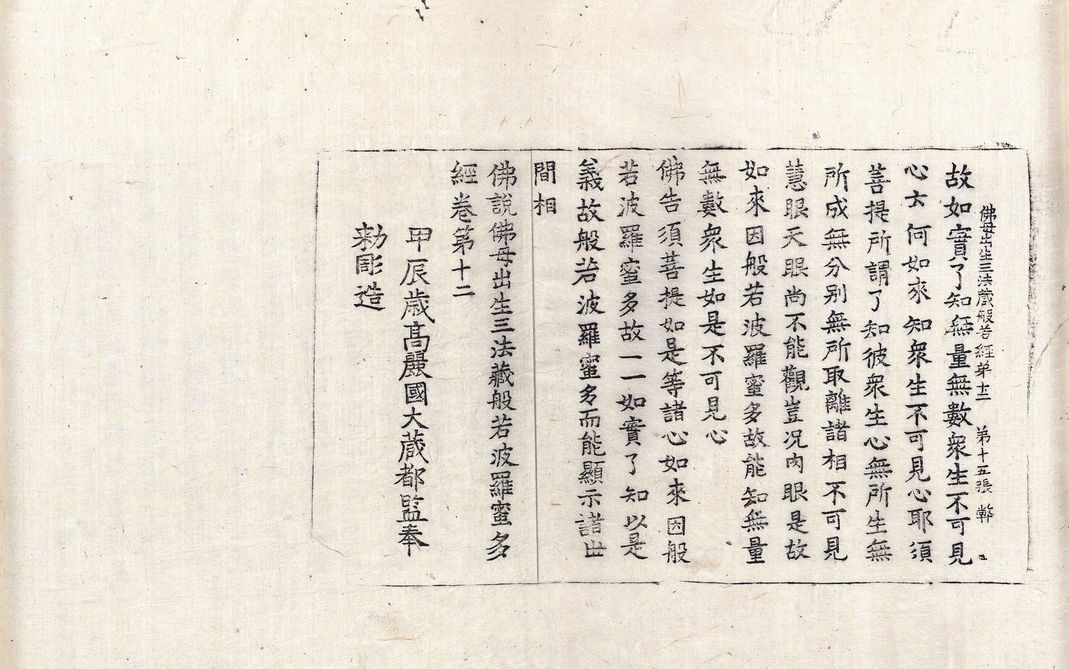 佛母出生三法蔵般若經第十二 第十五張 幹
故如實了知無量無數衆生不可見
心云何如來知衆生不可見心耶須
菩提所謂了知彼衆生心無所生無
所成無分别無所取離諸相不可見
慧眼天眼尚不能觀豈況肉眼是故
如來因般若波羅蜜多故能知無量
無數衆生如是不可見心
佛告須菩提如是等諸心如來因般
若波羅蜜多故一一如實了知以是
義故般若波羅蜜多而能顯示諸世
間相
佛說佛母出生三法藏般若波羅蜜多
經卷第十二
甲辰歳高麗國大蔵都監奉
勑彫造